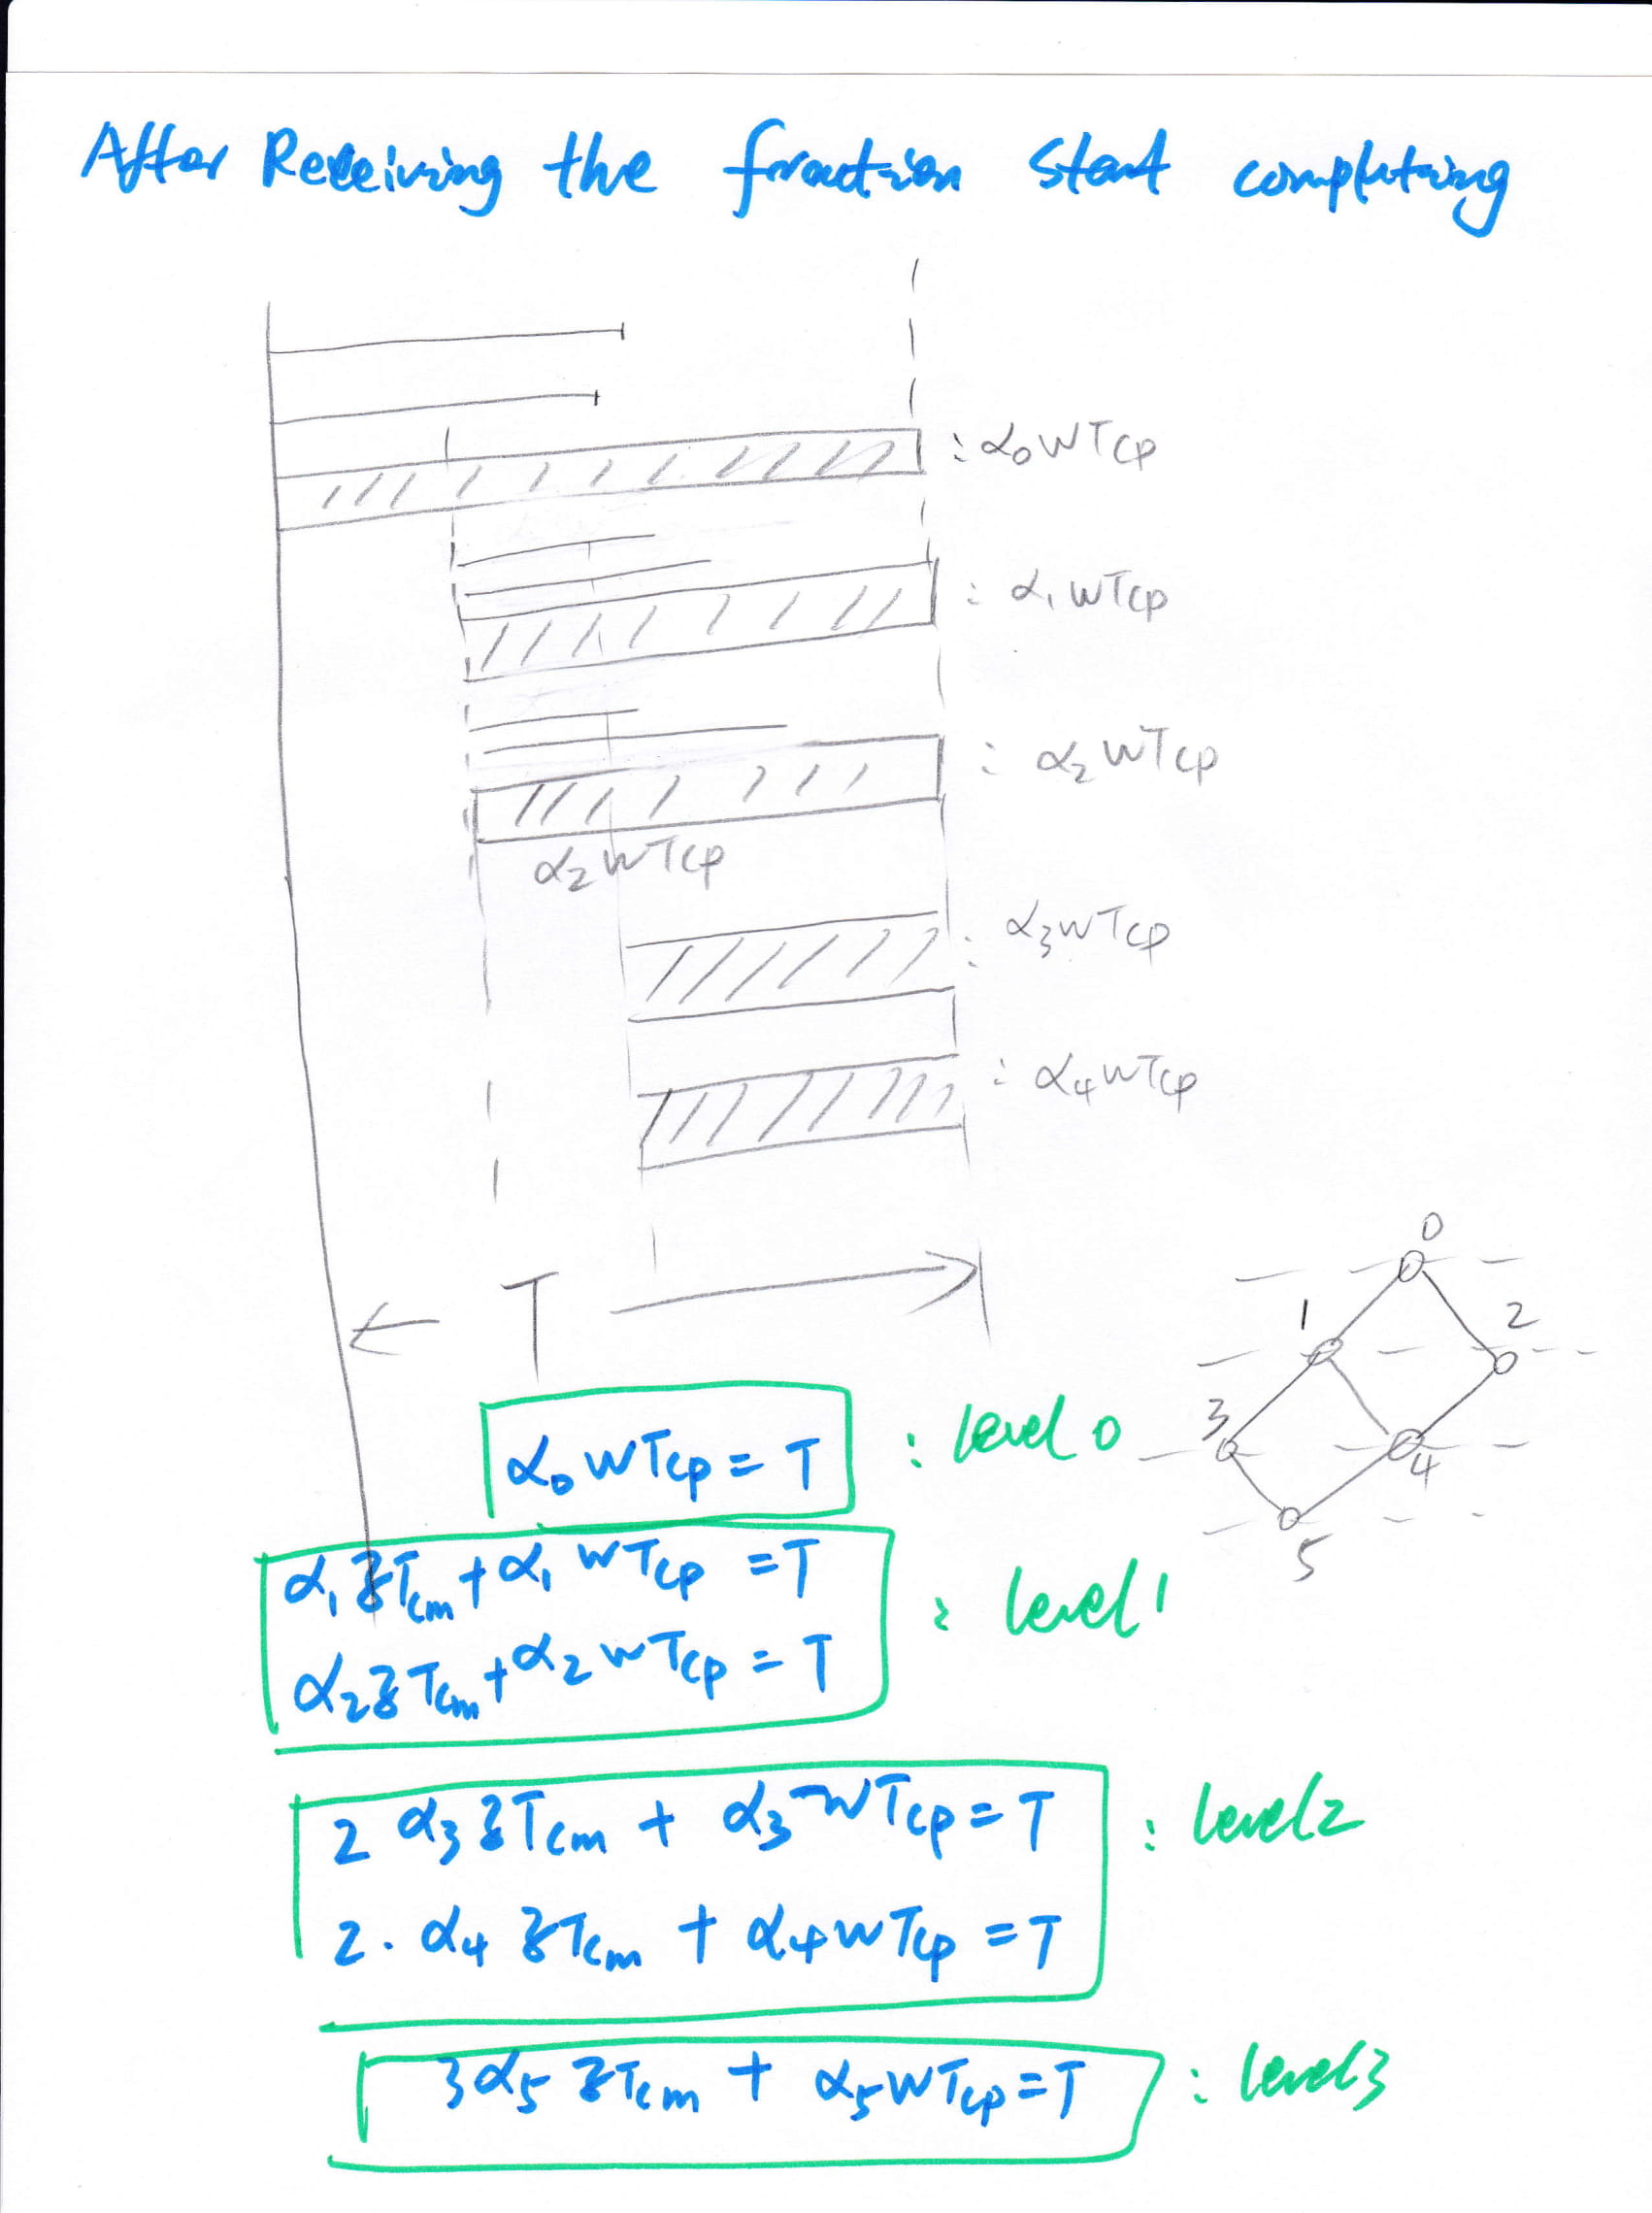 After Receiving the fraction start computing
: α₀WTcp
: α₁WTcp
: α₂WTcp
α₂WTcp
: α₃WTcp
: α₄WTcp
T
0
1 2
3 4
5
α₀WTcp = T : level 0
α₁zTcm + α₁WTcp = T
: level 1
α₂zTcm + α₂WTcp = T
2 α₃zTcm + α₃WTcp = T : level 2
2 · α₄zTcm + α₄WTcp = T
3α₅zTcm + α₅WTcp = T : level 3